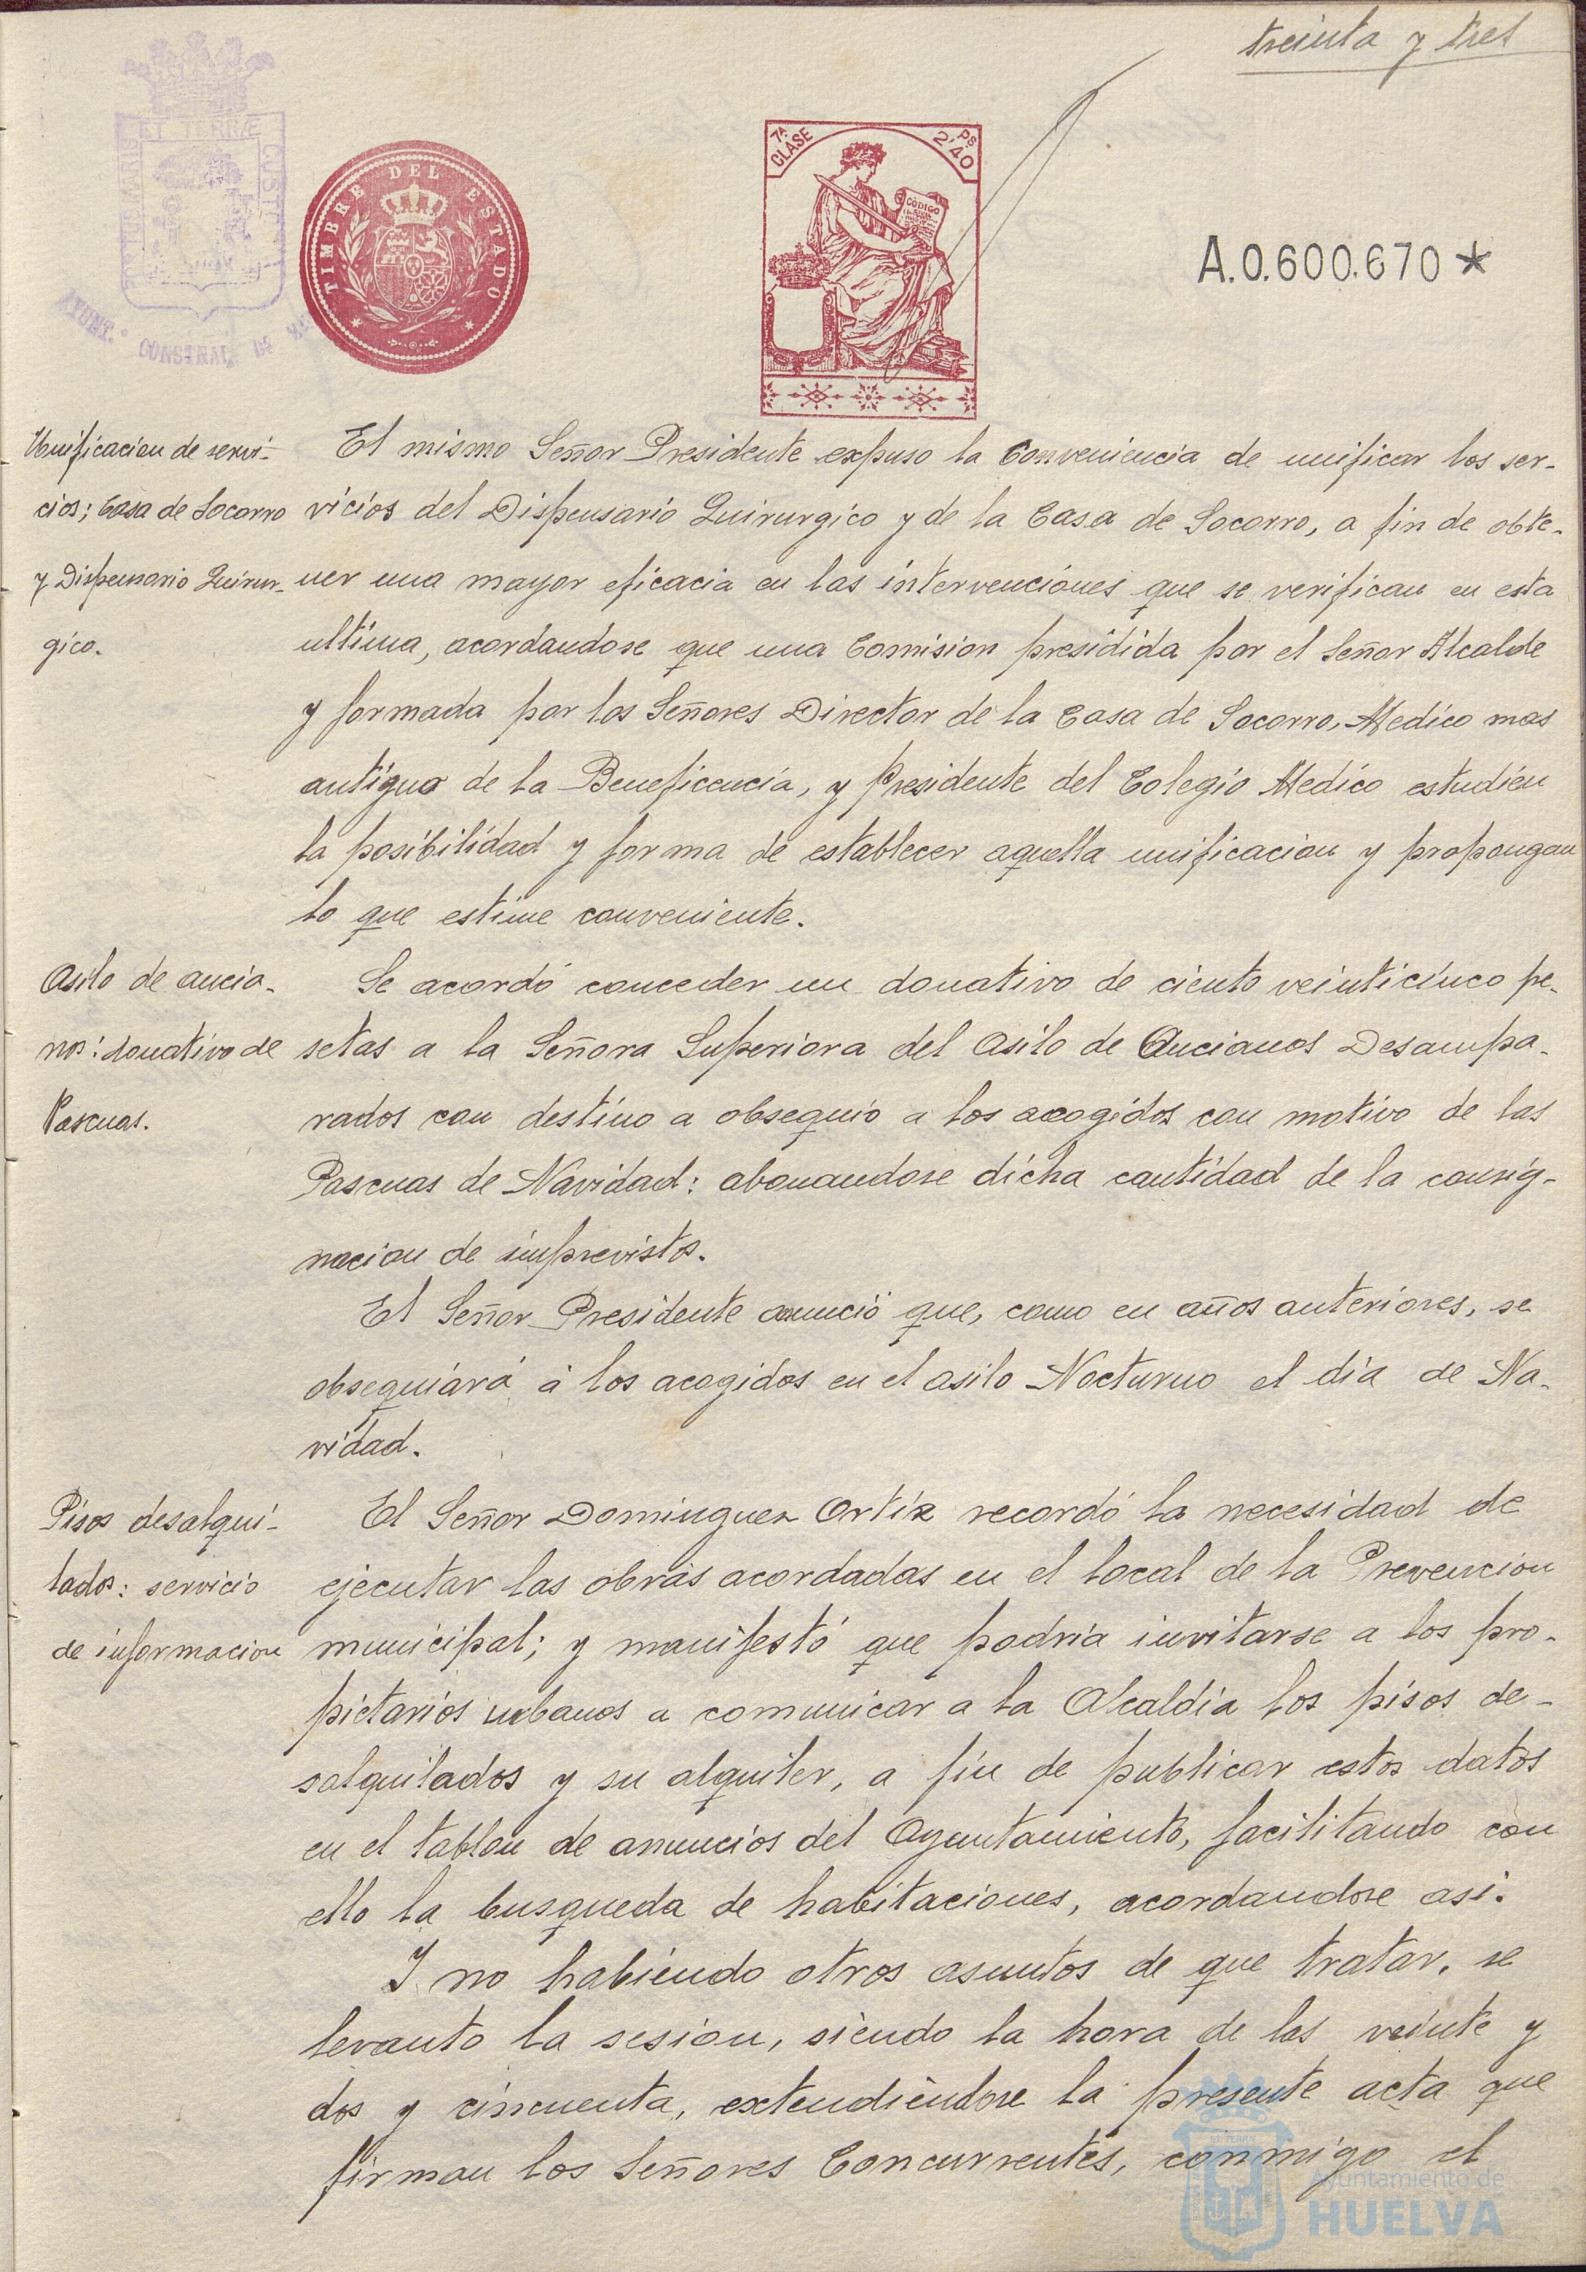 treinta y tres
PORTUS MARIS ET TERRÆ CUSTODIA
AYUNT.º CONSTNAL DE
TIMBRE DEL ESTADO
7ª CLASE
2'40 PS
CODIGO
A.0.600.670*
Unificacion de servi-
cios; Casa de Socorro
y Dispensario Quirur-
gico.
El mismo Señor Presidente expuso la Conveniencia de unificar los ser-
vicios del Dispensario Quirurgico y de la Casa de Socorro, a fin de obte-
ner una mayor eficacia en las intervenciones que se verifican en esta
ultima, acordandose que una Comision presidida por el Señor Alcalde
y formada por los Señores Director de la Casa de Socorro, Medico mas
antiguo de la Beneficencia, y Presidente del Colegio Medico estudien
la posibilidad y forma de establecer aquella unificacion y propongan
lo que estime conveniente.
Asilo de ancia-
nos: donativo de
Pascuas.
Se acordó conceder un donativo de ciento veinticinco pe-
setas a la Señora Superiora del Asilo de Ancianos Desampa-
rados con destino a obsequio a los acogidos con motivo de las
Pascuas de Navidad: abonandose dicha cantidad de la consig-
nacion de imprevistos.
El Señor Presidente anunció que, como en años anteriores, se
obsequiará á los acogidos en el asilo Nocturno el dia de Na-
vidad.
Pisos desalqui-
lados: servicio
de informacion
El Señor Dominguez Ortiz recordó la necesidad de
ejecutar las obras acordadas en el local de la Prevencion
municipal; y manifestó que podria invitarse a los pro-
pietarios urbanos a comunicar a la Alcaldia los pisos de-
salquilados y su alquiler, a fin de publicar estos datos
en el tablon de anuncios del Ayuntamiento, facilitando con
ello la busqueda de habitaciones, acordandose asi.
Y no habiendo otros asuntos de que tratar, se
levanto la sesion, siendo la hora de las veinte y
dos y cincuenta, extendiéndose la presente acta que
firman los Señores Concurrentes, conmigo el
Ayuntamiento de
HUELVA